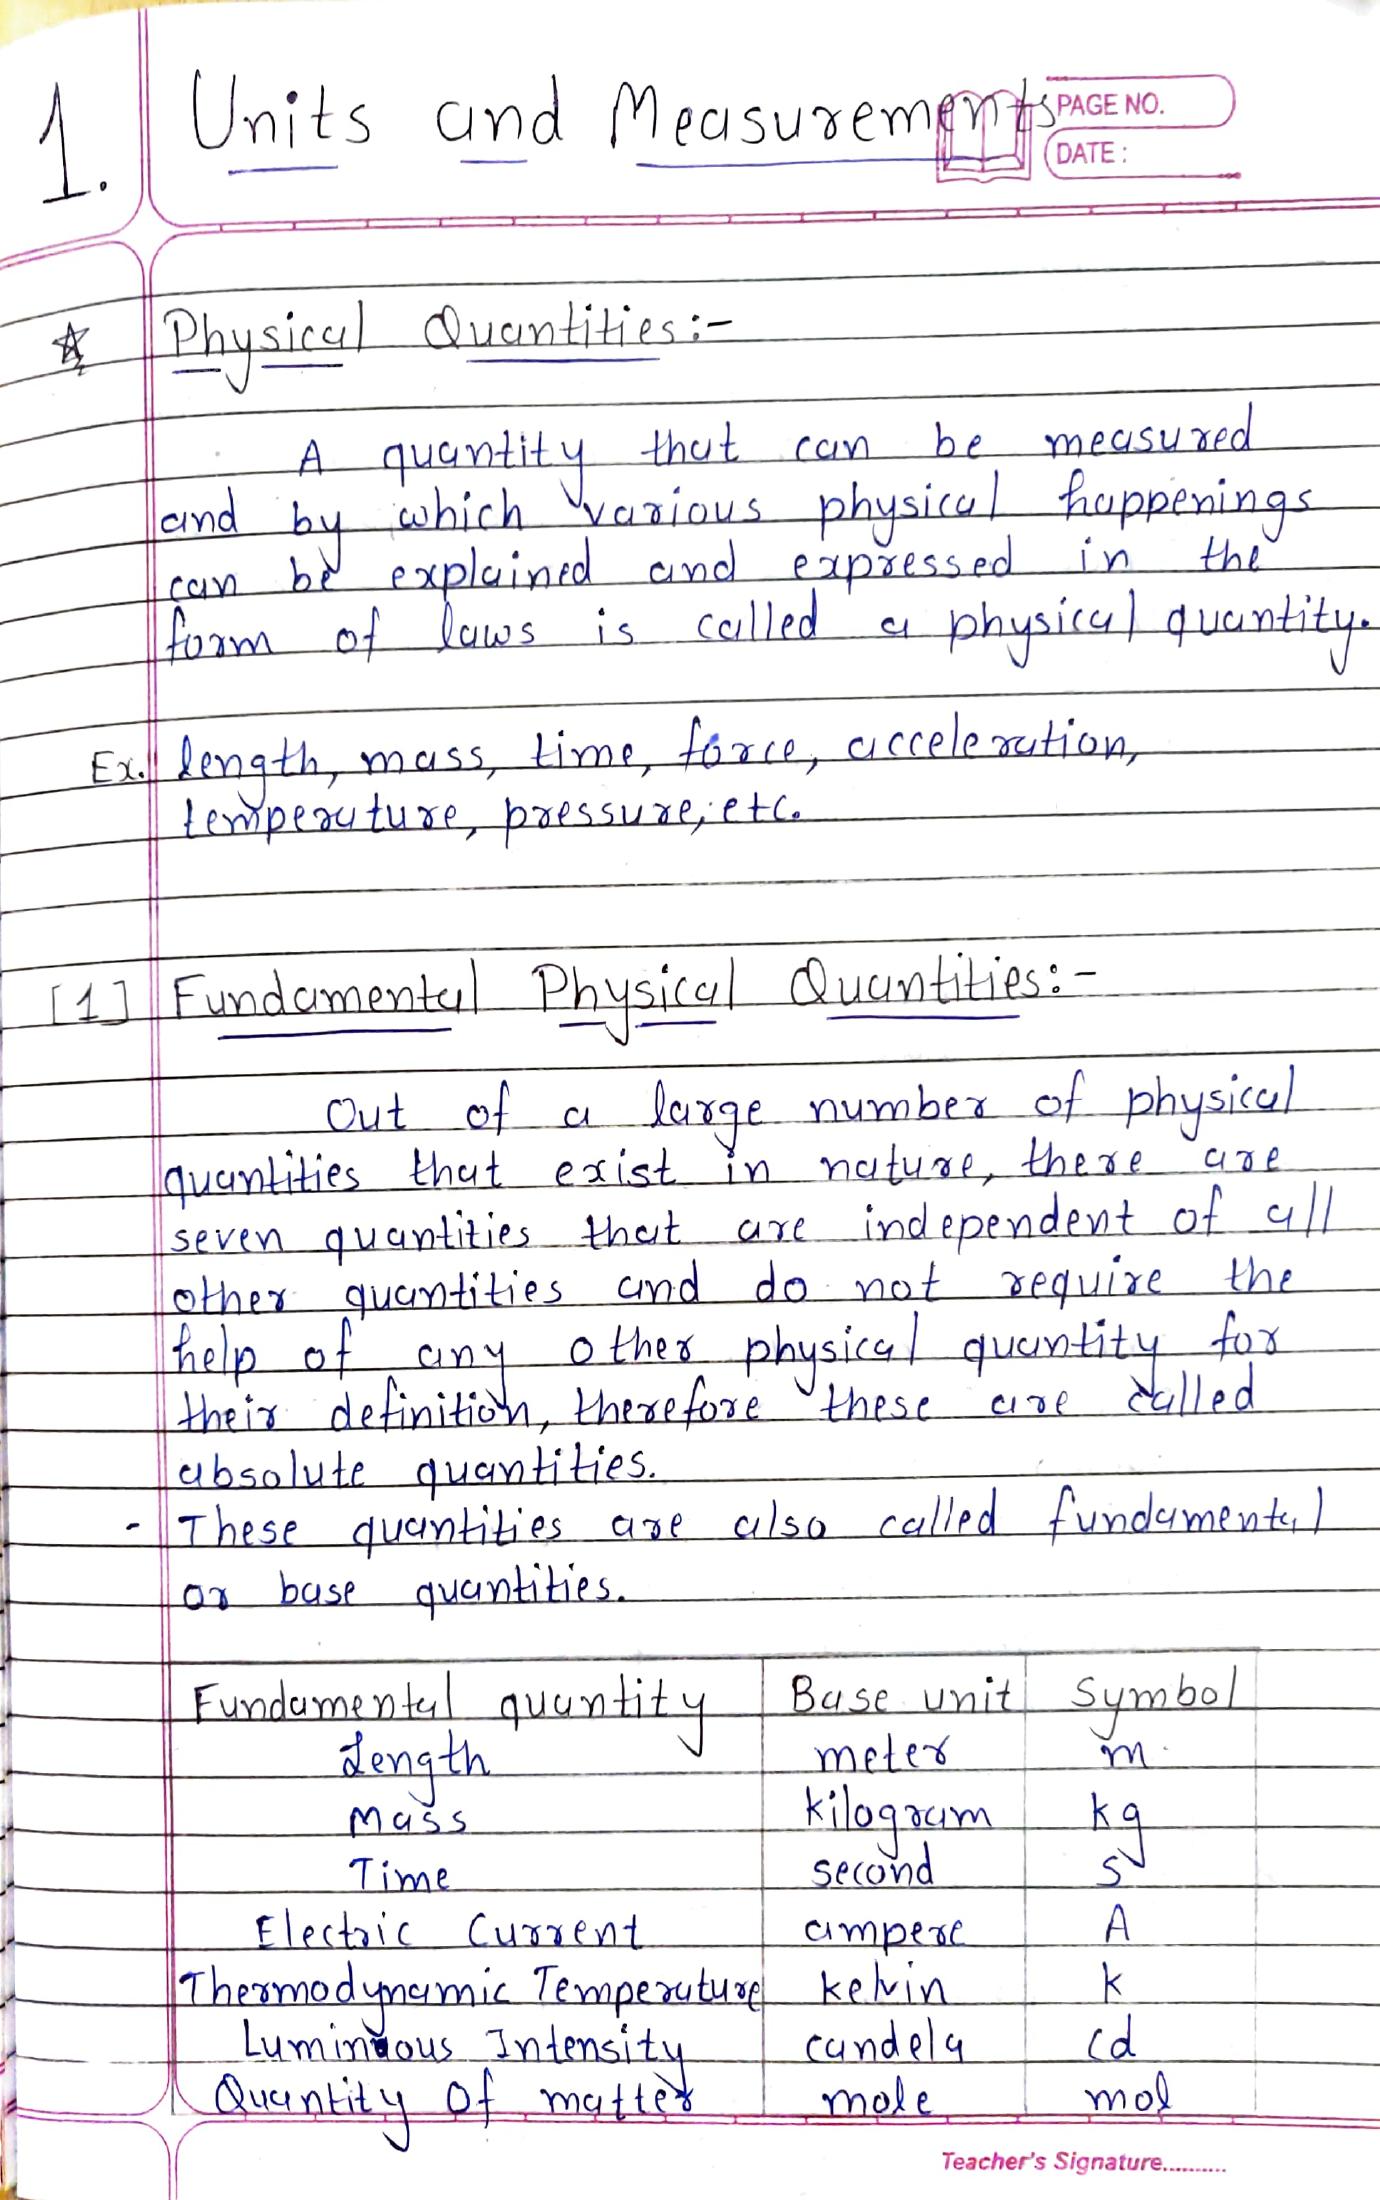 1. Units and Measurements
PAGE NO.
DATE:
☆ Physical Quantities:-
A quantity that can be measured
and by which various physical happenings
can be explained and expressed in the
form of laws is called a physical quantity.
Ex. length, mass, time, force, acceleration,
temperature, pressure, etc.
[1] Fundamental Physical Quantities:-
Out of a large number of physical
quantities that exist in nature, there are
seven quantities that are independent of all
other quantities and do not require the
help of any other physical quantity for
their definition, therefore these are called
absolute quantities.
- These quantities are also called fundamental
or base quantities.
Fundamental quantity Base unit Symbol
Length meter m
Mass kilogram kg
Time second s
Electric Current ampere A
Thermodynamic Temperature kelvin k
Luminous Intensity candela cd
Quantity Of matter mole mol
Teacher's Signature..........